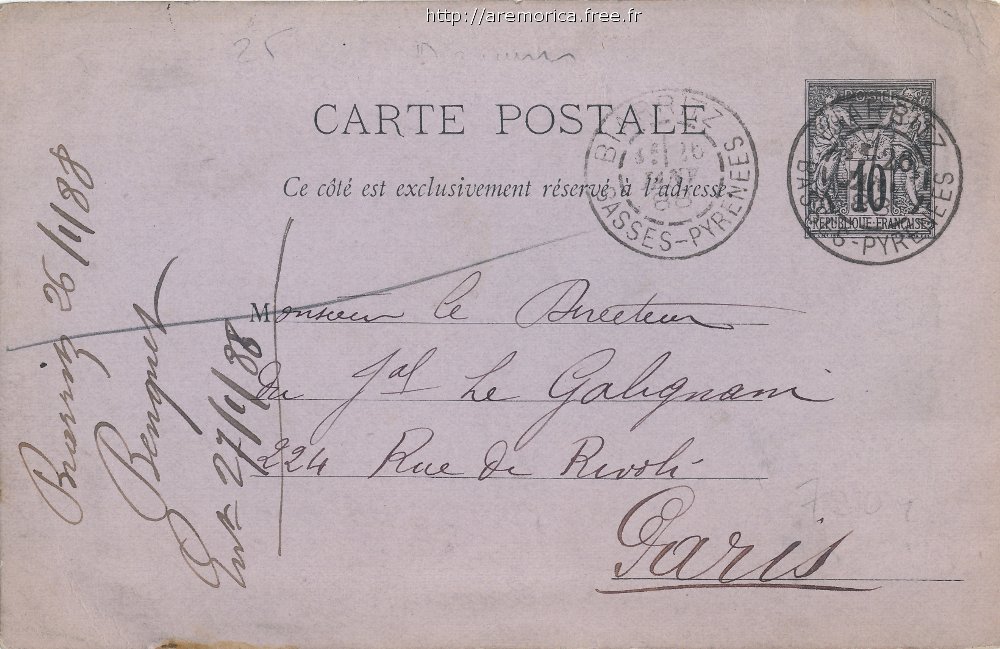 http://aremorica.free.fr
25
CARTE POSTALE
BIARRITZ
26
JANV
88
BASSES-PYRENES
POSTE
10
REPUBLIQUE FRANÇAISE
BIARRITZ
26
BASSES-PYRENEES
Ce côté est exclusivement réservé à l'adresse.
Monsieur le Directeur
du Jal Le Galignani
224 Rue de Rivoli
Paris
Biarritz 26/1/88
Benquet
27/1/88